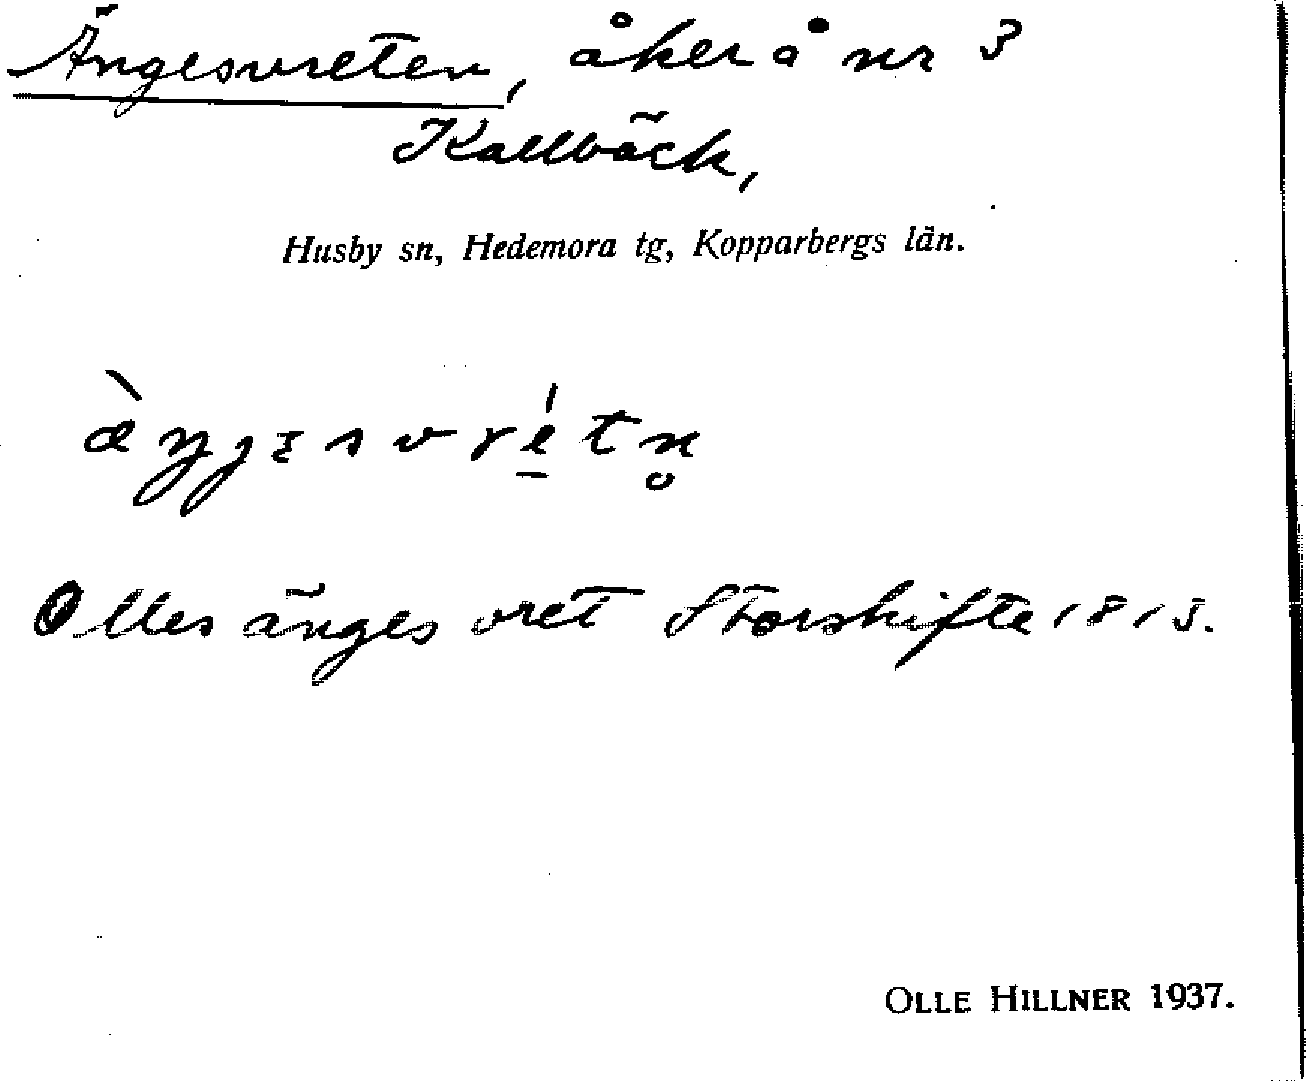 Ängesvreten, åker å nr 3
Kallbäck,
Husby sn, Hedemora tg, Kopparbergs län.
Olles änges vret Storskifte 1815.
OLLE HILLNER 1937.